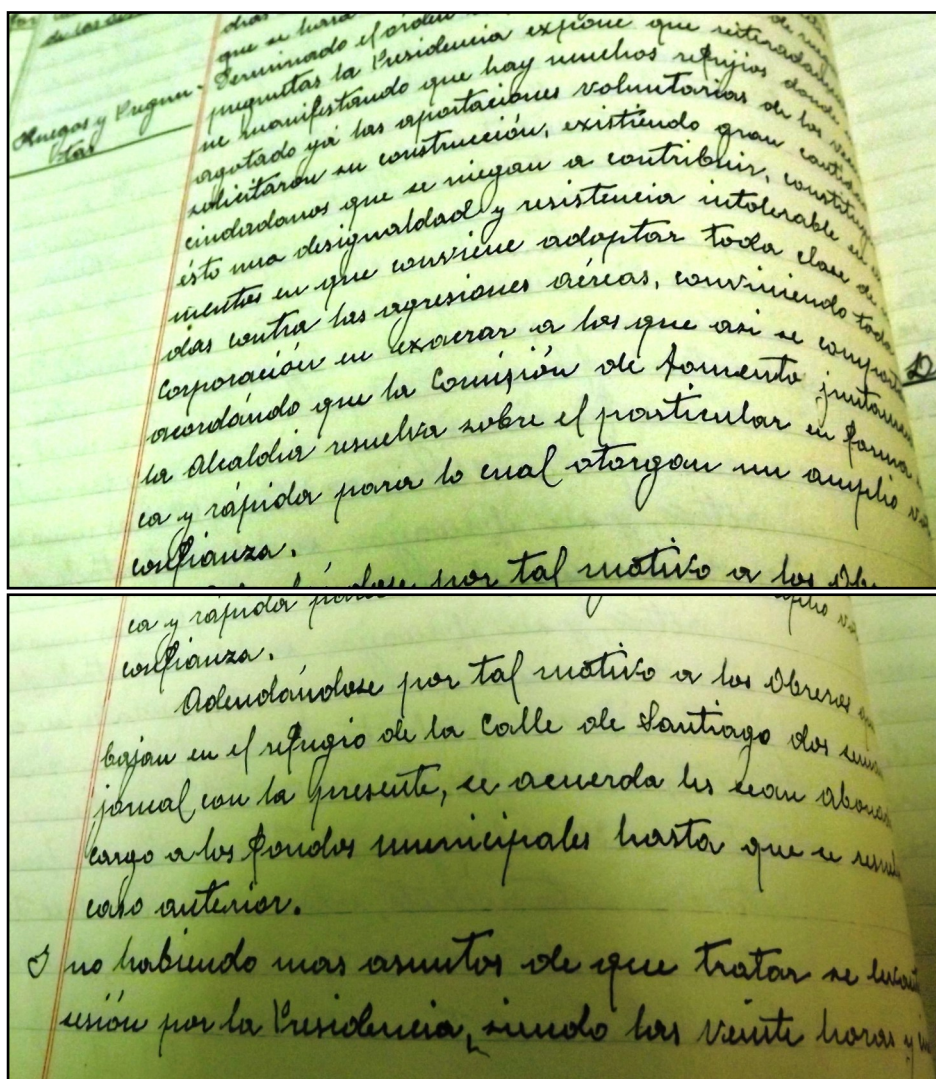 de los de
Ruegos y Pregun-
tas
que se hará
Terminado el orden
preguntas la Presidencia expone que reiteradamen
ne manifestando que hay muchos refujios donde
agotado ya las aportaciones voluntarias de los veci
solicitaron su construcción, existiendo gran cantidad
ciudadanos que se niegan a contribuir, constituye
ésto una desigualdad y resistencia intolerable en
mentos en que conviene adoptar toda clase de
das contra las agresiones aéreas, conviniendo toda
Corporación en execrar a los que asi se comporta
acordándo que la Comisión de Fomento juntamen
la Alcaldia resuelva sobre el particular en forma
ca y rápida para lo cual otorgan un amplio vo
confianza.
por tal motivo a los Ob
ca y rápida
confianza.
Adeudándose por tal motivo a los Obreros
bajan en el refugio de la Calle de Santiago dos
jornal con la presente, se acuerda les sean abona
cargo a los fondos municipales hasta que se resu
caso anterior.
Y no habiendo mas asuntos de que tratar se levant
esión por la Presidencia, siendo las veinte horas y